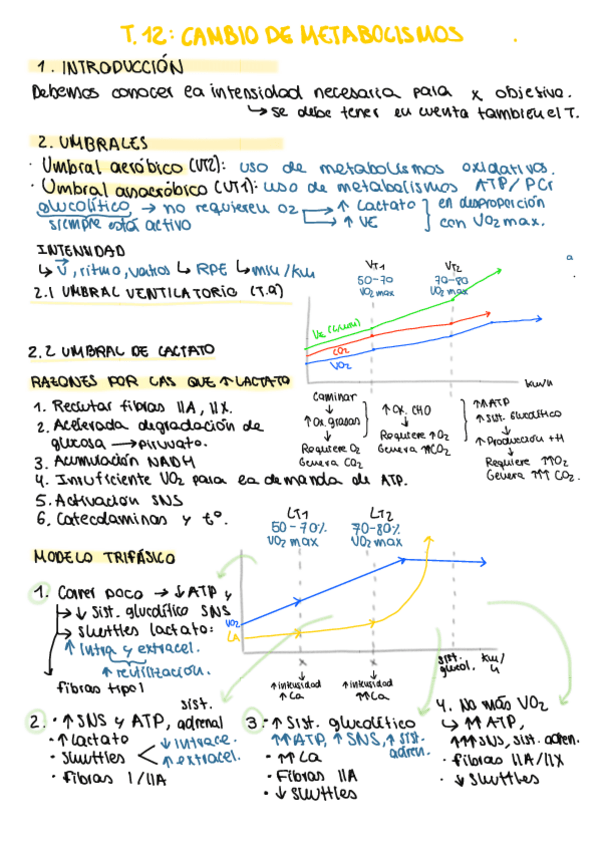 T.12: CAMBIO DE METABOLISMOS
1. INTRODUCCIÓN
Debemos conocer la intensidad necesaria para x objetivo.
↳ se debe tener en cuenta también el T.
2. UMBRALES
· Umbral aeróbico (VT2): uso de metabolismos oxidativos.
· Umbral anaeróbico (VT1): uso de metabolismos ATP/PCr
glucolítico → no requieren O2 → ↑ Lactato en desproporción
siempre está activo → ↑ VE con VO2max.
INTENSIDAD
↳ v, ritmo, vatios ↳ RPE ↳ min/km
2.1 UMBRAL VENTILATORIO (T.9)
VT1 VT2
50-70 70-80
VO2max VO2max
VE (L/min)
CO2
VO2
km/h
2.2 UMBRAL DE LACTATO
RAZONES POR LAS QUE ↑ LACTATO
1. Reclutar fibras IIA, IIX.
2. Acelerada degradación de
glucosa → piruvato.
3. Acumulación NADH
4. Insuficiente VO2 para la demanda de ATP.
5. Activación SNS
6. Catecolaminas y tº.
Caminar
↓
↑ Ox. grasas
↓
Requiere O2
Genera CO2
↑ Ox. CHO
↓
Requiere ↑O2
Genera ↑CO2
↑↑ATP
↑ sist. Glucolítico
↓
↑ Producción +H
↓
Requiere ↑↑O2
Genera ↑↑ CO2.
LT1 LT2
50-70% 70-80%
VO2max VO2max
VO2
LA
x x
↓ ↓
↑intensidad ↑intensidad
↑La ↑↑La
sist. glucol.
km/h
MODELO TRIFÁSICO
1. Correr poco → ↓ATP y
↓ sist. glucolítico SNS
→ Shuttles lactato:
↑ intra y extracel.
↑ reutilización.
fibras tipo I
2. · ↑ SNS y ATP, sist. adrenal
· ↑ Lactato
· Shuttles < ↓ intrace. ↑ extracel.
· Fibras I/IIA
3. · ↑ Sist. glucolítico
↑↑ATP, ↑ SNS, ↑ sist. adren.
· ↑↑ La
· Fibras IIA
· ↓ Shuttles
4. No más VO2
↳ ↑↑ ATP,
↑↑↑SNS, sist. adren.
· fibras IIA/IIX
· ↓ Shuttles